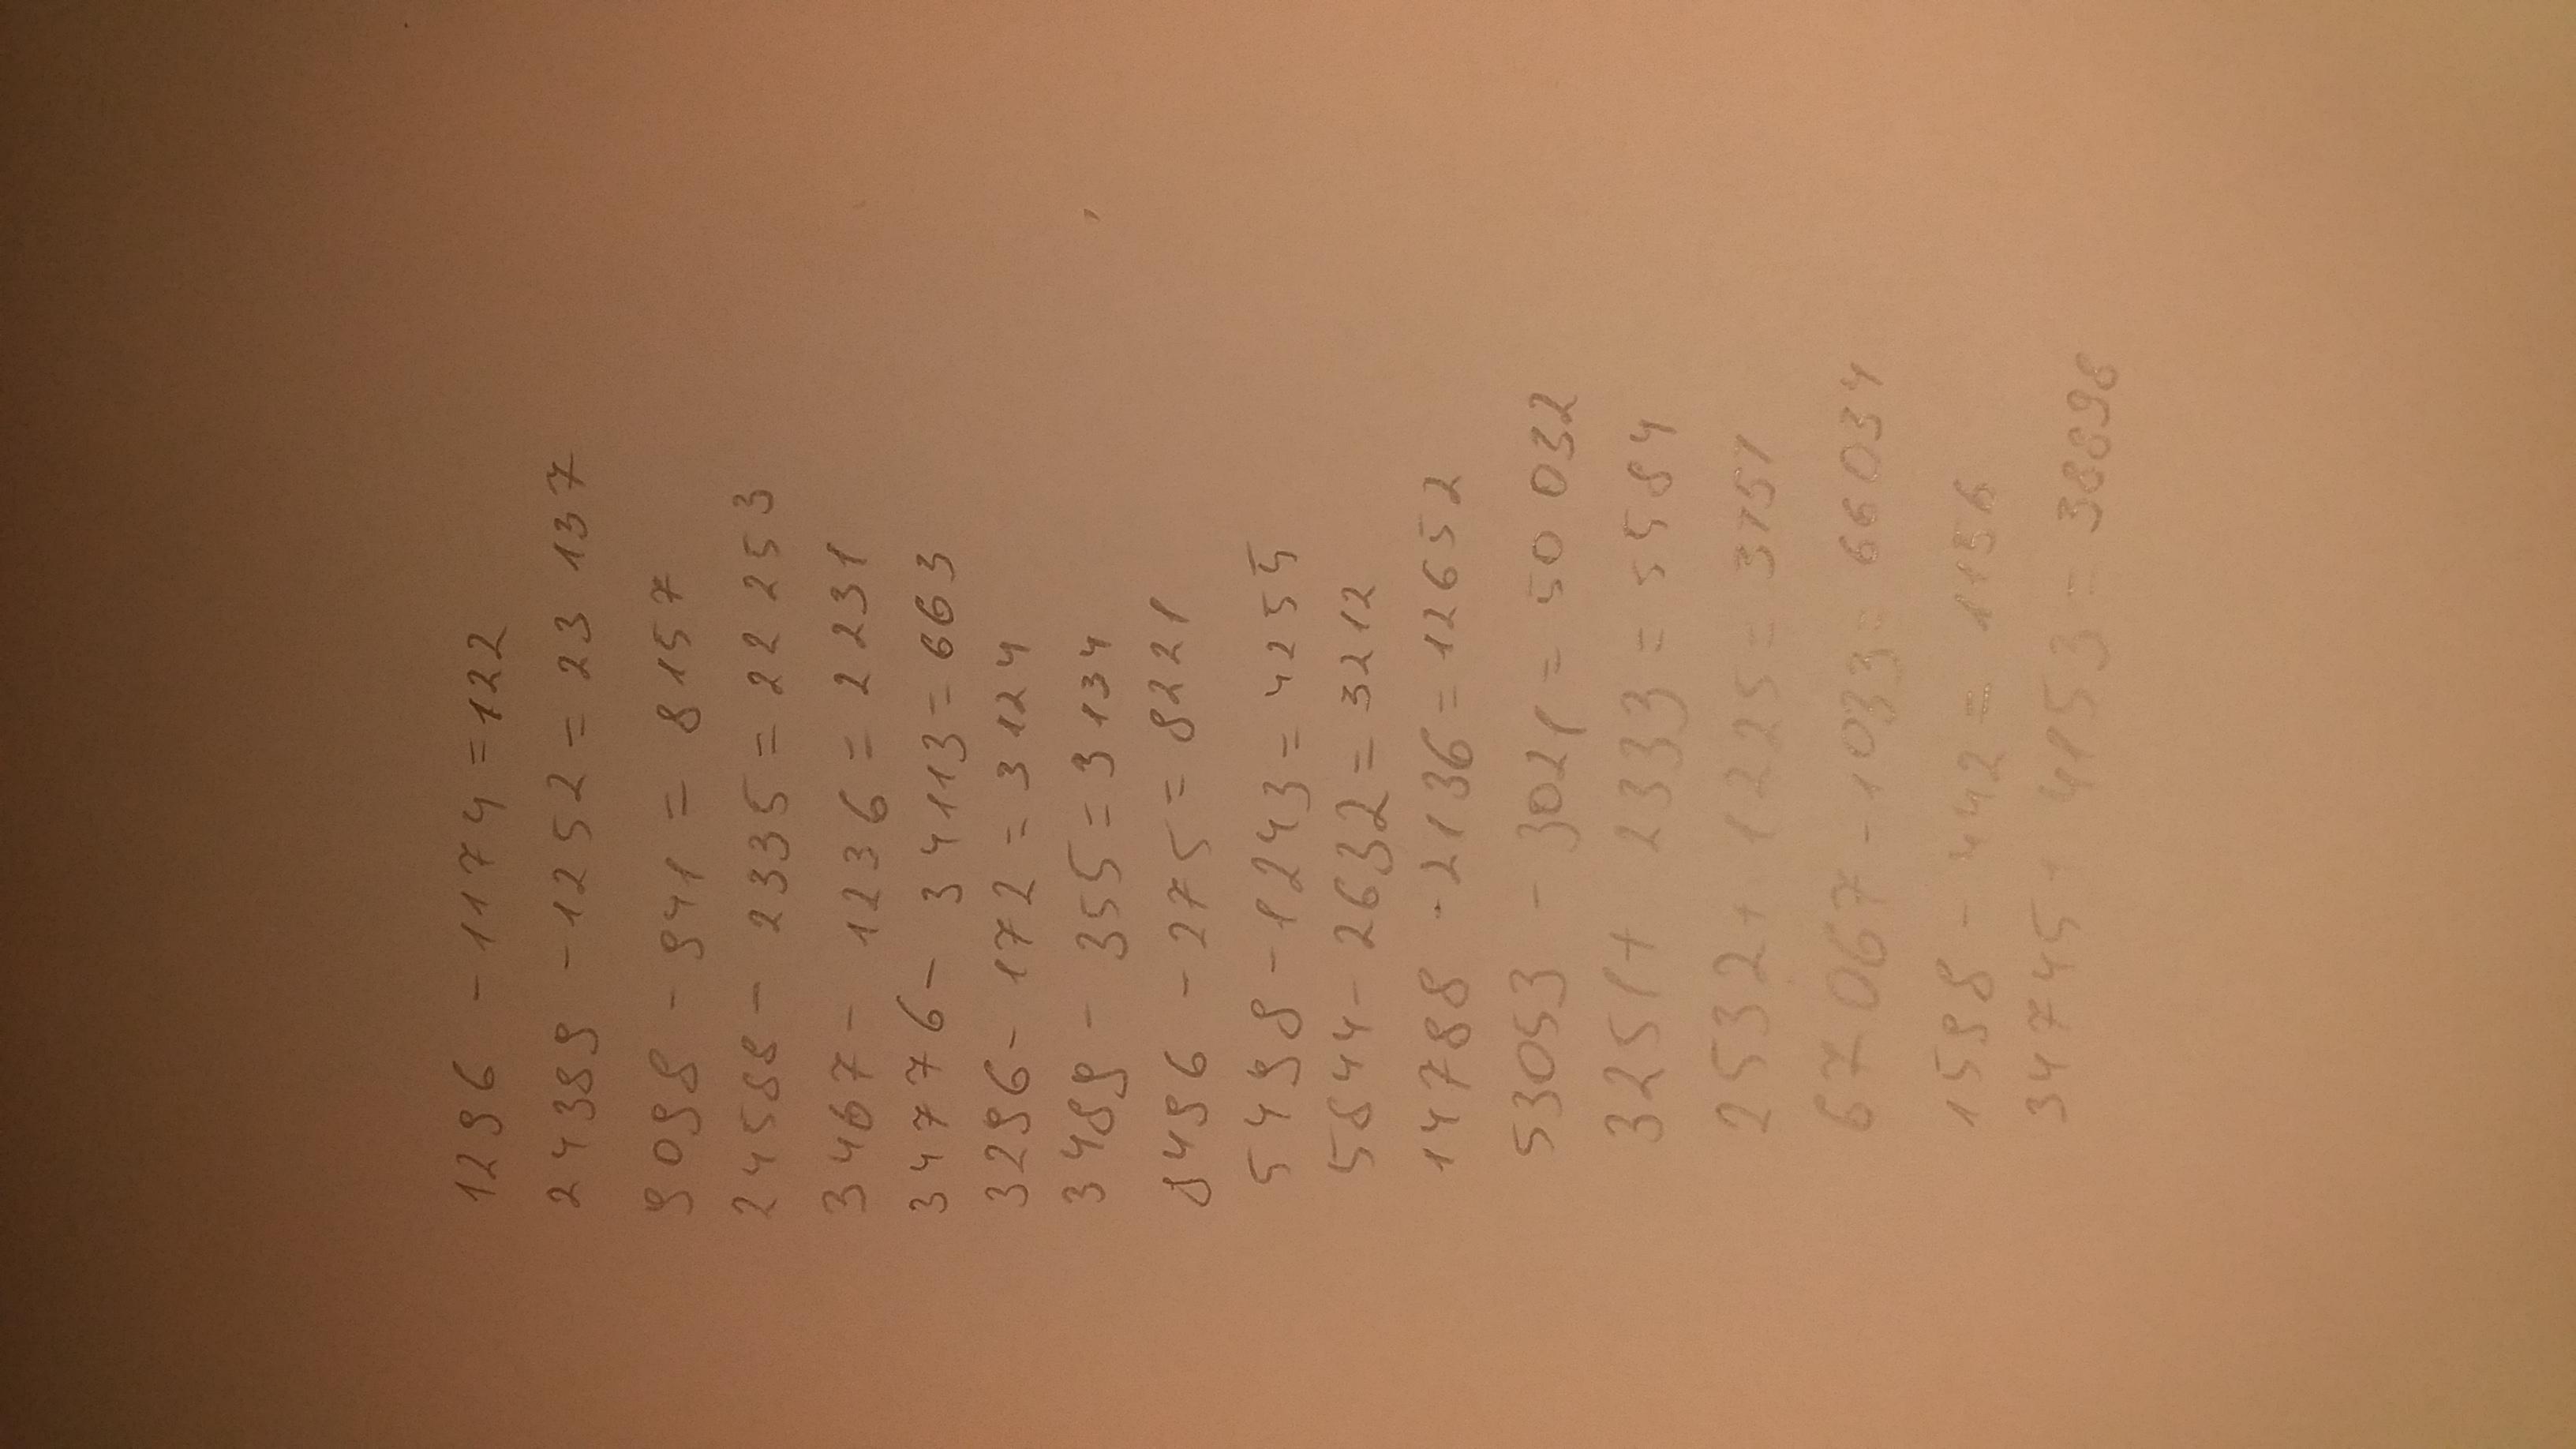 1296 - 1174 = 122
24389 - 1252 = 23 137
9098 - 941 = 8157
24588 - 2335 = 22 253
3467 - 1236 = 2231
34776 - 34113 = 663
3296 - 172 = 3124
3489 - 355 = 3134
8496 - 275 = 8221
5498 - 1243 = 4255
5844 - 2632 = 3212
14788 - 2136 = 12652
53053 - 3021 = 50 032
3251 + 2333 = 5584
2532 + 1225 = 3757
67067 - 1033 = 66034
1598 - 442 = 1156
34745 + 4153 = 38898